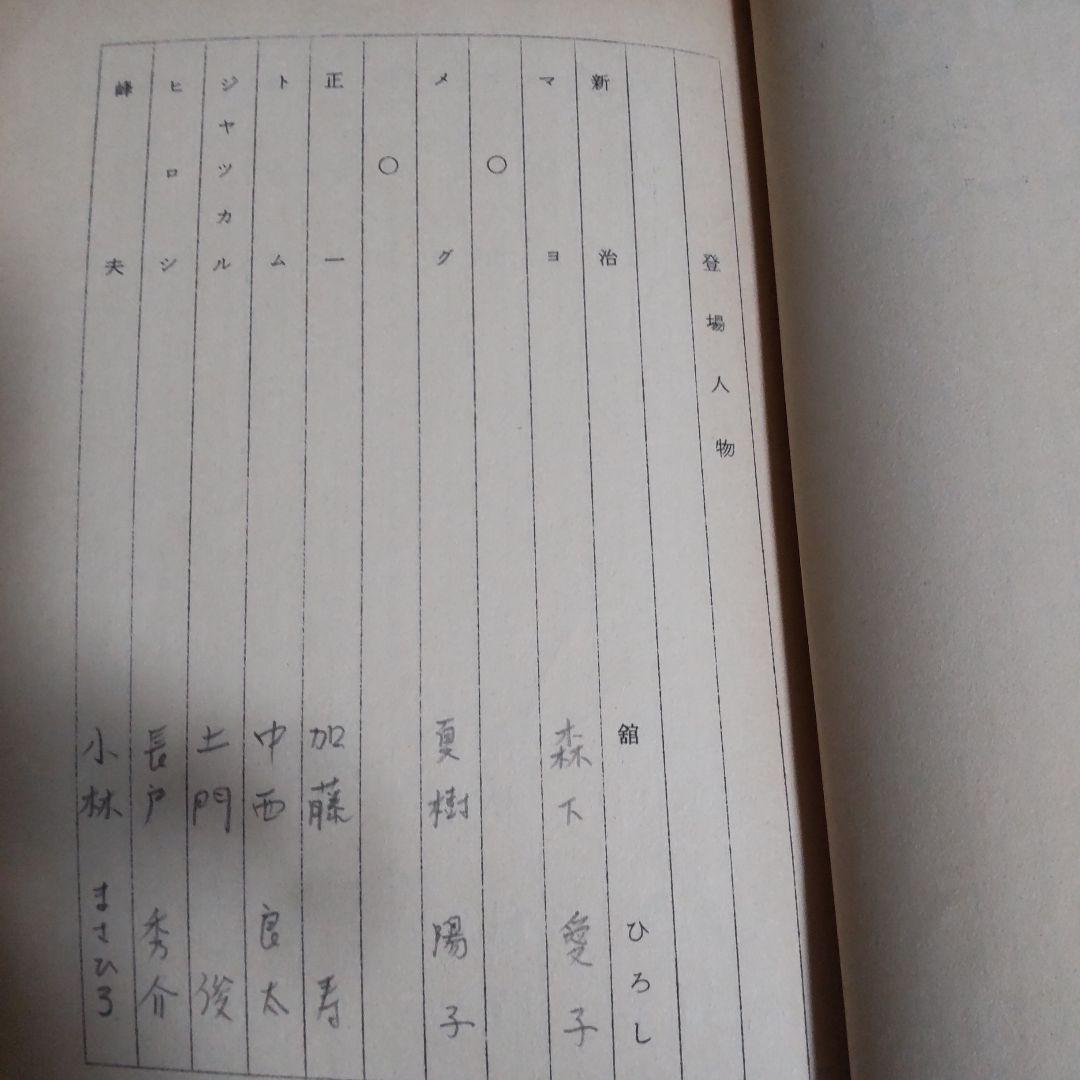 登場人物
新治 舘 ひろし
マヨ 森下 愛子
○
メグ 夏樹 陽子
○
正一 加藤 寿
トム 中西 良太
ジャッカル 土門 俊
ヒロシ 長戸 秀介
峰夫 小林 まさひろ